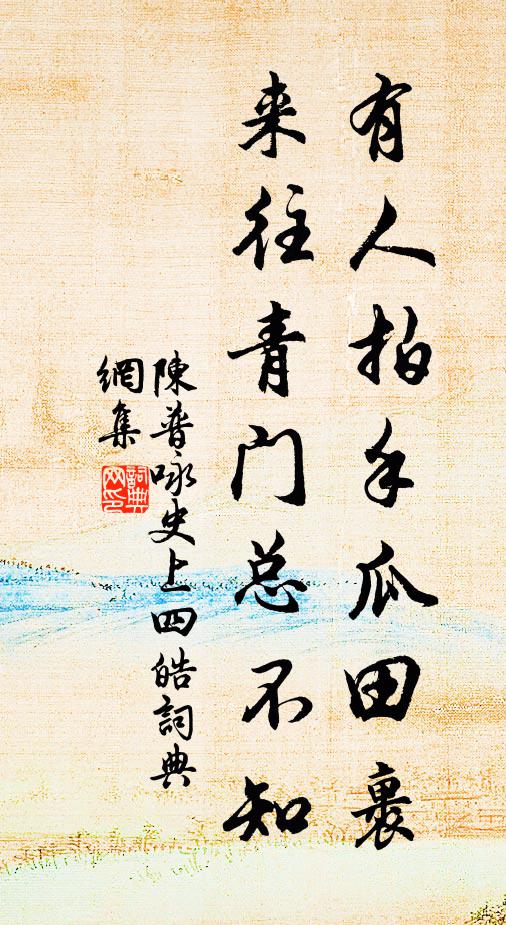 有人拍手瓜田裹
来往青门总不知
陳普咏史上四皓詞典
網集
詞典网印